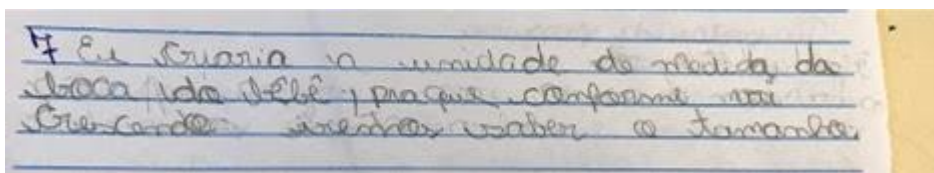 7 Eu criaria a unidade de medida da
boca do bebê, pra que conforme vai
crescendo iremos saber o tamanho